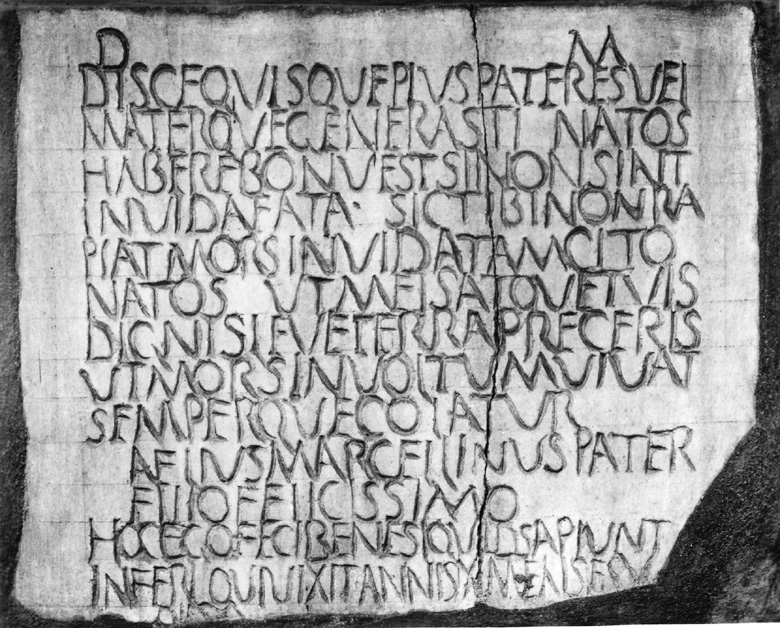 D M
DISCEQVISQVEPIVSPATERESVEL
MATERQVEGENERASTI NATOS
HABEREBONVESTSINONSINT
INVIDAFATA· SICTIBINONRA
PIATMORSINVIDATAMCITO
NATOS VTMEISATQVETVIS
DIGNISLEVETERRAPRECERIS
VTMORSINVOLTVMVIVAT
SEMPERQVECOLATVR
AELIVSMARCELLINVSPATER
FILIOFELICISSIMO
HOCEGOFECIBENESIQVIDSAPIVNT
INFERIQVIVIXITANNIS